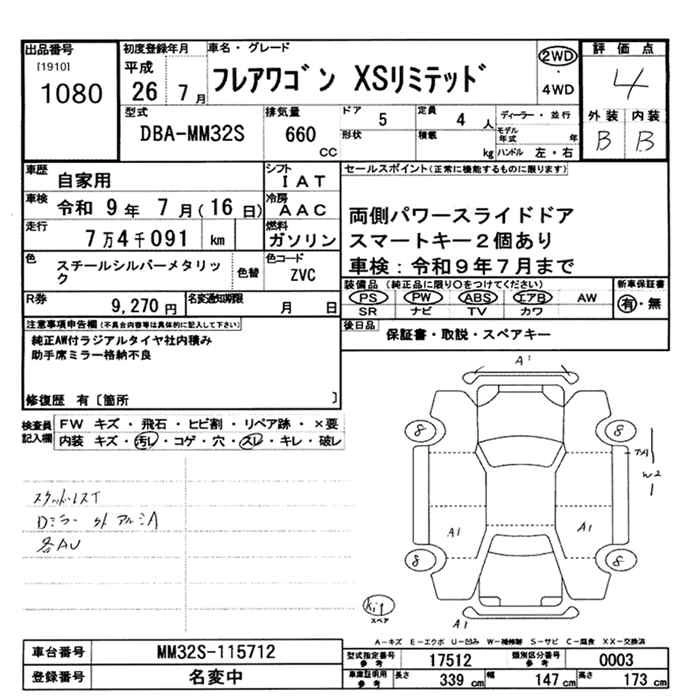 出品番号
[1910]
1080
初度登録年月
平成
26 7月
車名・グレード
フレアワゴン XSリミテッド
2WD
・
4WD
評価点
4
外装 内装
B B
型式
DBA-MM32S
排気量
660
CC
ドア
5
形状
定員
4 人
積載
kg
ディーラー・並行
モデル年式 年
ハンドル 左・右
車歴
自家用
シフト
IAT
車検
令和 9年 7月(16日)
冷房
AAC
走行
7万4千091 km
燃料
ガソリン
色
スチールシルバーメタリック
色替
色コード
ZVC
R券
9,270円
名変通知期限
月 日
セールスポイント(正常に機能するものに限ります)
両側パワースライドドア
スマートキー2個あり
車検:令和9年7月まで
装備品(純正品に限り○をつけてください)
PS PW ABS エアB AW
SR ナビ TV カワ
新車保証書
有・無
後日品
保証書・取説・スペアキー
注意事項申告欄(不具合内容等は具体的に記入して下さい)
純正AW付ラジアルタイヤ社内積み
助手席ミラー格納不良
修復歴 有〔箇所 〕
検査員記入欄
FW キズ・飛石・ヒビ割・リペア跡・×要
内装 キズ・汚レ・コゲ・穴・スレ・キレ・破レ
スタッドレスT
Dミラー 外 アルミA
各AU
A1
8
8
W2
A1
A1
8
8
スペア
A1
A-キズ E-エクボ U-凹み W-補修跡 S-サビ C-腐食 XX-交換済
車台番号
MM32S-115712
登録番号
名変中
型式指定番号
参考
17512
類別区分番号
参考
0003
車庫証明用
参考
長さ
339 cm
幅
147 cm
高さ
173 cm